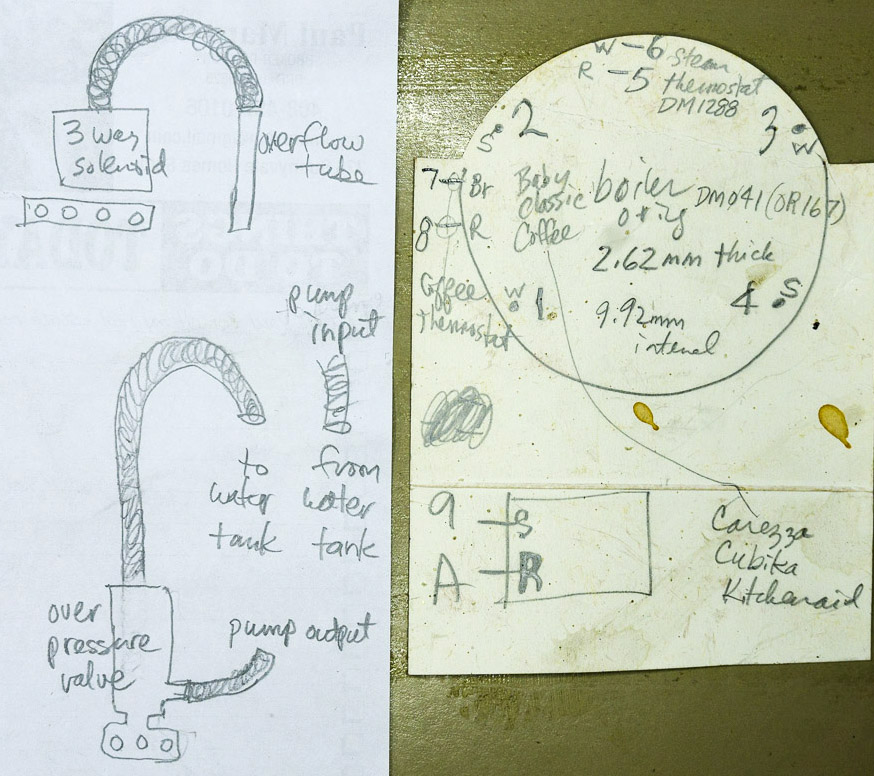 3 way
solenoid
overflow
tube
pump
input
to
water
tank
from
water
tank
over
pressure
valve
pump output
W - 6 steam
R - 5 thermostat
DM1288
S 2
3 W
7 Br
8 R
Baby
classic
Coffee
boiler
oring
DM041 (OR167)
2.62mm thick
9.92mm
internal
Coffee
thermostat
W 1
4 S
9 S
A R
Carezza
Cubika
Kitchenaid